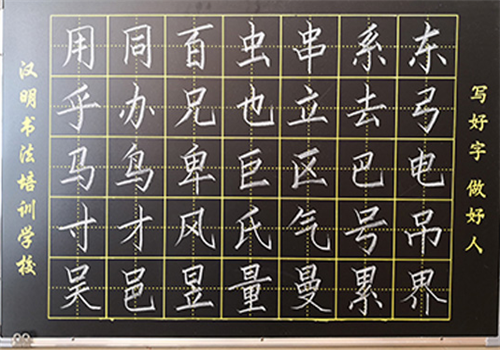 汉明书法培训学校
用同百虫串系东
乎办兄也立去弓
马鸟卑巨区巴电
寸才风氏气号吊
吴邑昱量曼累界
写好字 做好人